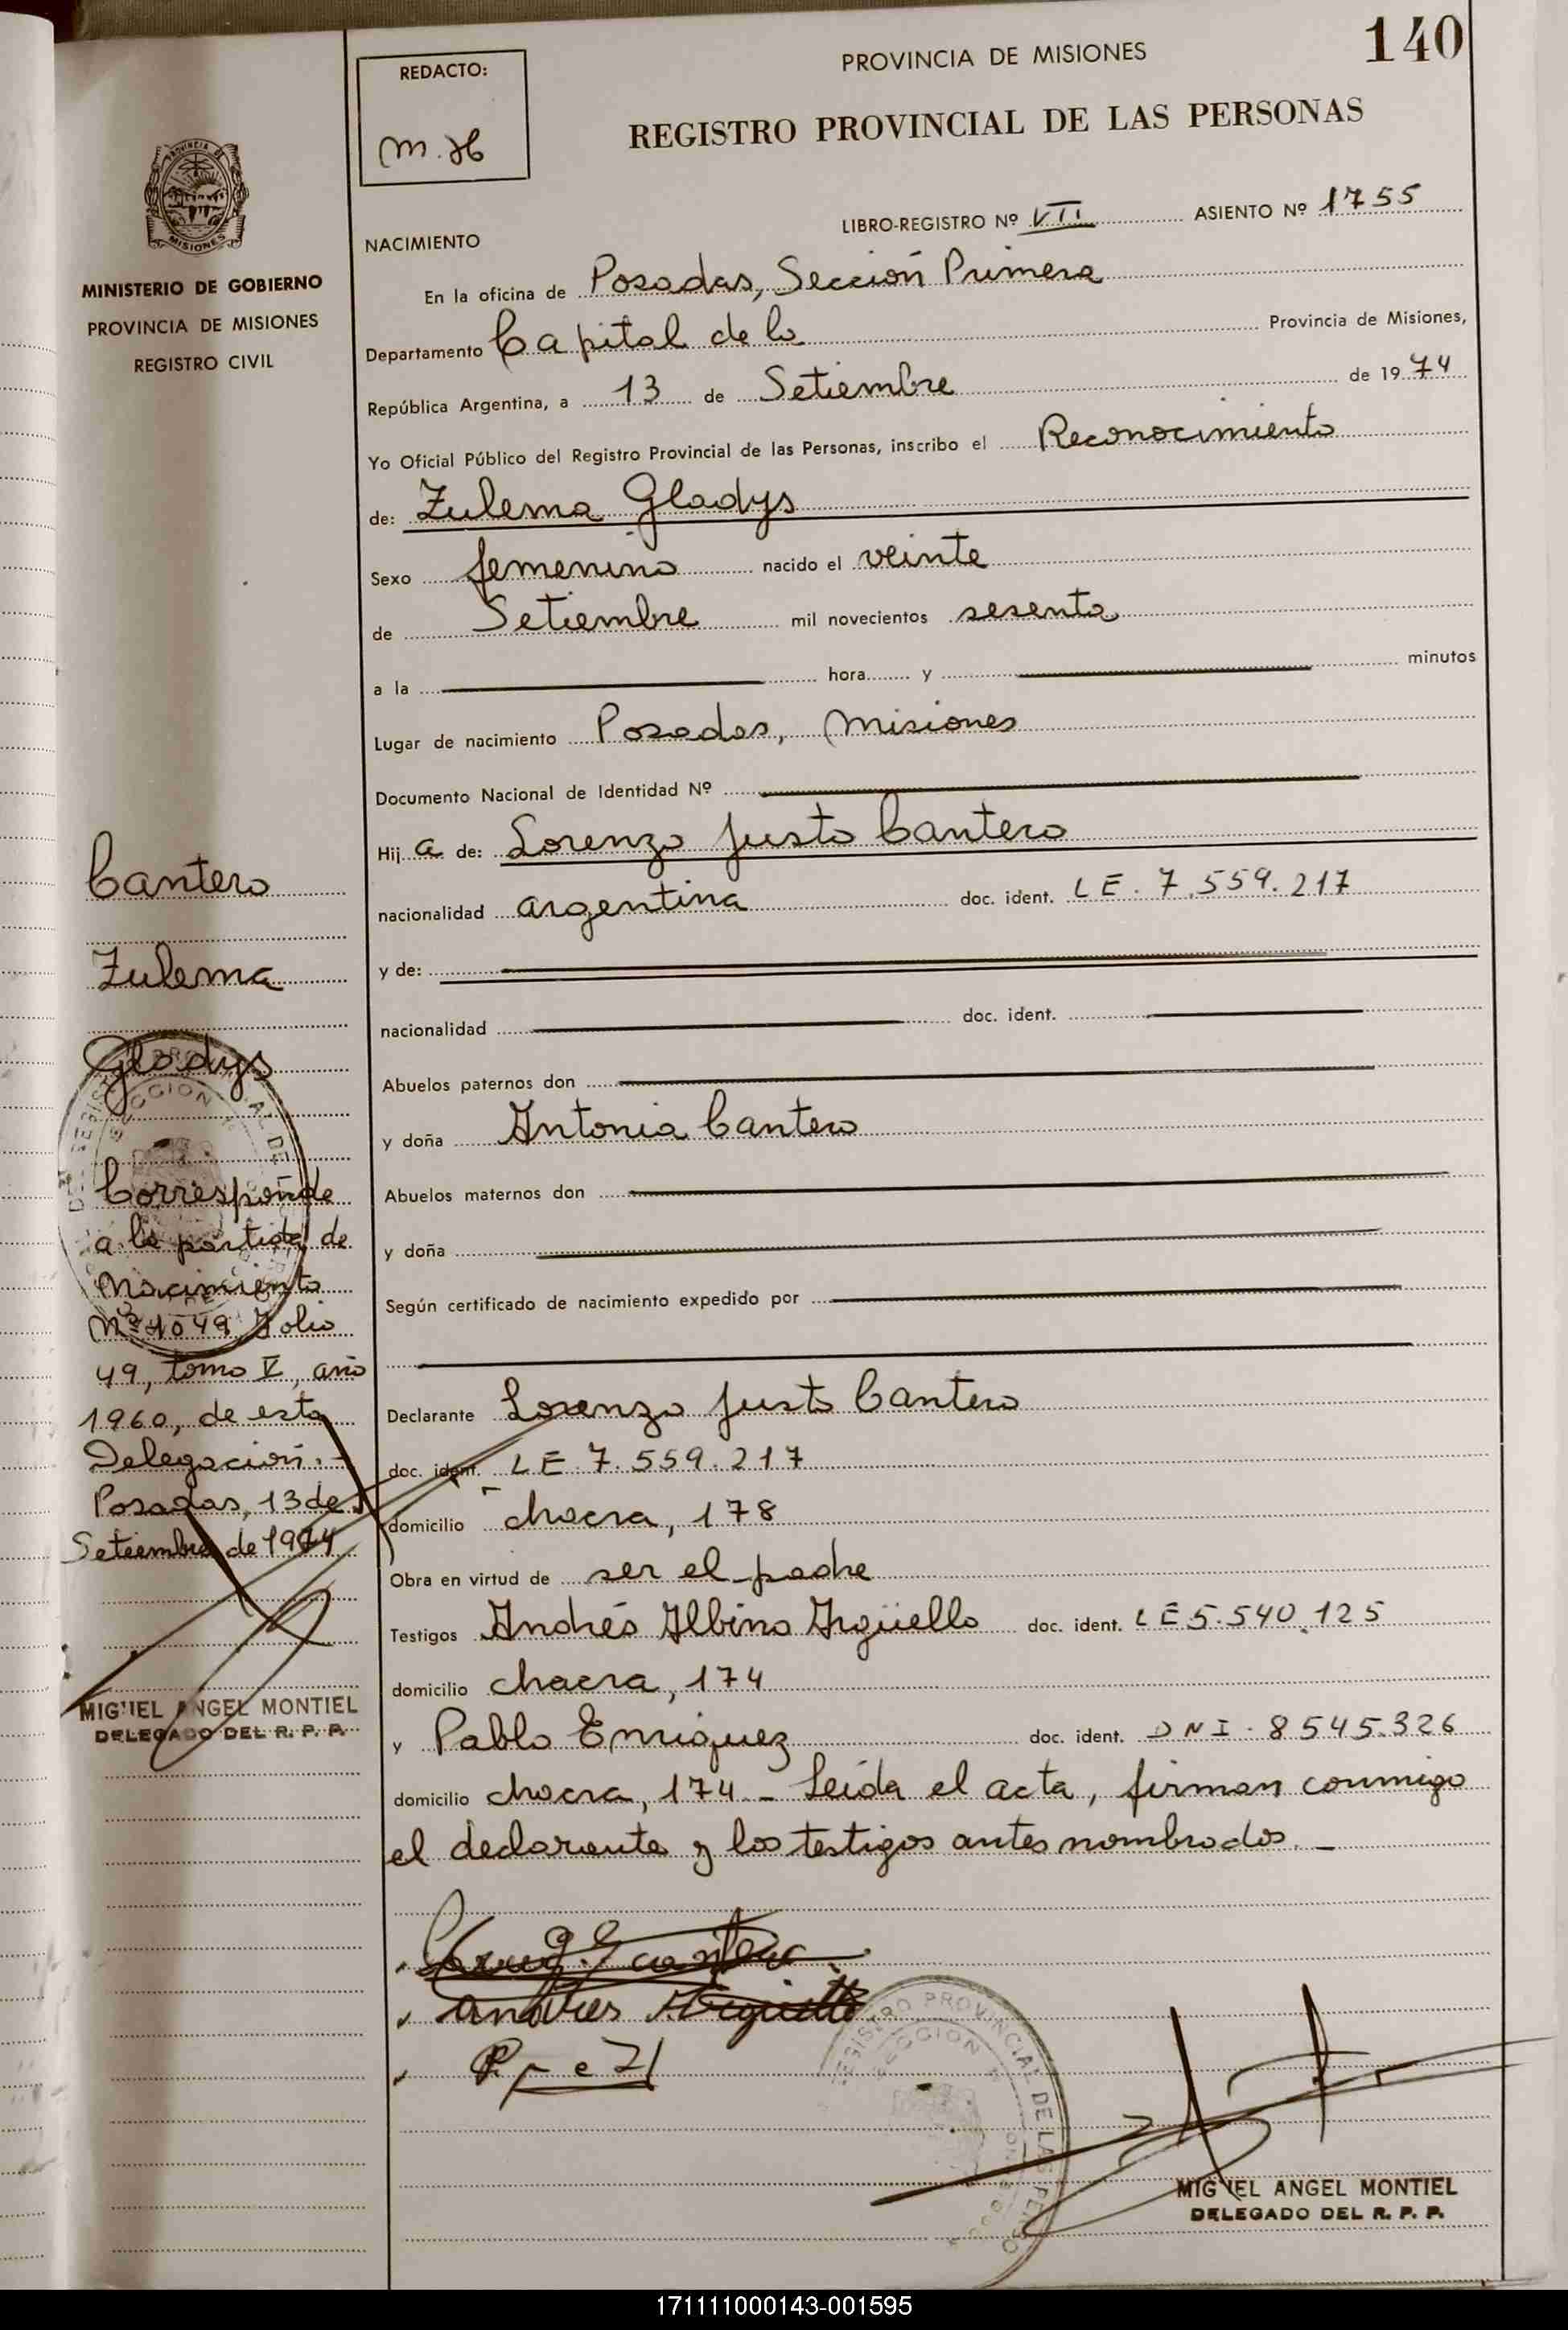 140
PROVINCIA DE MISIONES
REGISTRO PROVINCIAL DE LAS PERSONAS
REDACTO:
PROVINCIA DE
MISIONES
MINISTERIO DE GOBIERNO
PROVINCIA DE MISIONES
REGISTRO CIVIL
LIBRO-REGISTRO Nº VII ASIENTO Nº 1755
NACIMIENTO
En la oficina de Posadas, Sección Primera
Departamento Capital de la Provincia de Misiones,
República Argentina, a 13 de Setiembre de 1974
Yo Oficial Público del Registro Provincial de las Personas, inscribo el Reconocimiento
de: Zulema Gladys
Sexo femenino nacido el veinte
de Setiembre mil novecientos sesenta
a la hora y minutos
Lugar de nacimiento Posadas, Misiones
Documento Nacional de Identidad Nº
Hij a de: Lorenzo Justo Cantero
nacionalidad argentina doc. ident. LE. 7.559.217
y de:
nacionalidad doc. ident.
Abuelos paternos don
y doña Antonia Cantero
Abuelos maternos don
y doña
Según certificado de nacimiento expedido por
Declarante Lorenzo Justo Cantero
doc. ident. LE 7.559.217
domicilio chacra, 178
Obra en virtud de ser el padre
Testigos Andrés Albino Argüello doc. ident. LE 5.540.125
domicilio chacra, 174
y Pablo Enriquez doc. ident. DNI. 8545.326
domicilio chacra, 174 - Leída el acta, firman conmigo
el declarante y los testigos antes nombrados. -
Cantero
Zulema
Gladys
Corresponde
a la partida de
Nacimiento
Nº 1049 Folio
49, tomo V, año
1960, de esta
Delegación. -
Posadas, 13 de
Setiembre de 1974
MIGUEL ANGEL MONTIEL
DELEGADO DEL R. P. P.
Andres Arguello
REGISTRO PROVINCIAL DE LAS PERSO
SECCION
MIGUEL ANGEL MONTIEL
DELEGADO DEL R. P. P.
171111000143-001595